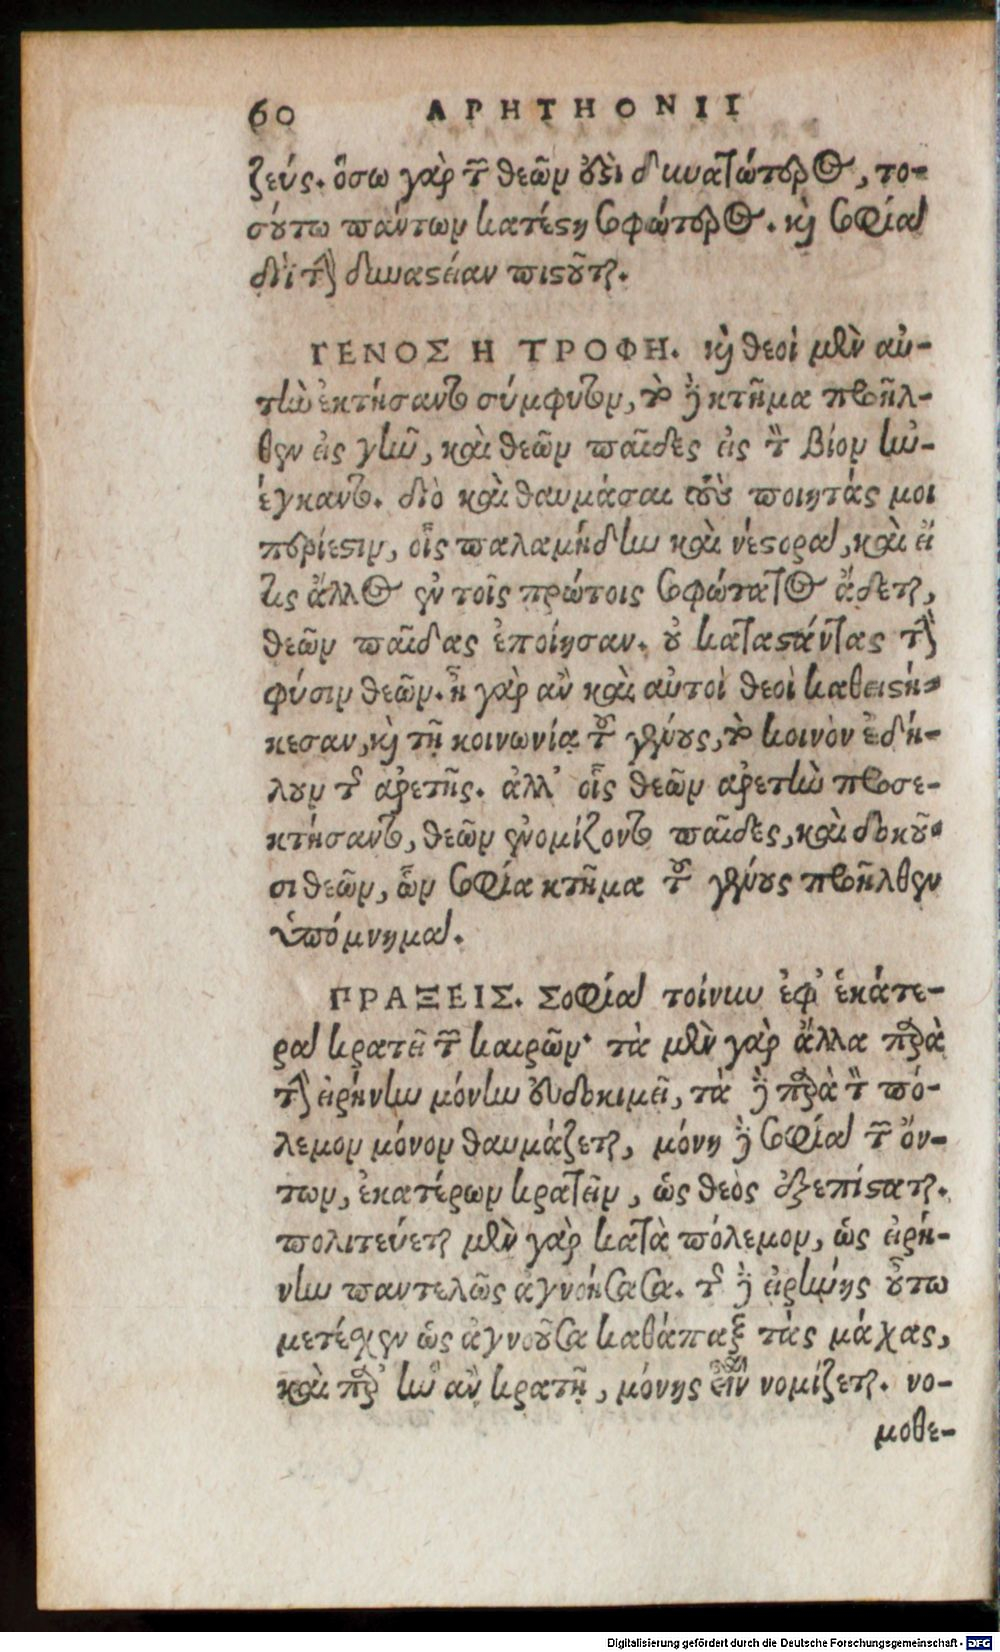 60 ΑΡΗΤΗΟΝΙΙ
ζεύς. ὅσῳ γὰρ τῶν θεῶν ὀδὲι δυνατώτερος, το-
σούτω πάντων κατέστη σοφώτερος. καὶ σοφίᾳ
διὰ τὴν δυναστείαν πιστοῦται.
ΓΕΝΟΣ Η ΤΡΟΦΗ. καὶ θεοὶ μὲν αὐ-
τὴν ἐκτήσαντο σύμφυτον, τὸ δὲ κτῆμα προῆλ-
θεν εἰς γῆν, καὶ θεῶν παῖδες εἰς τὸν βίον ἠν-
έγκαντο. διὸ καὶ θαυμάσαι τοὺς ποιητάς μοι
περίεστιν, οἷς παλαμήδην καὶ νέστορα, καὶ εἴ
τις ἄλλος ἐν τοῖς πρώτοις σοφώτατος ᾄδεται,
θεῶν παῖδας ἐποίησαν. οὐ καταστάντας τὴν
φύσιν θεῶν. ἦ γὰρ ἂν καὶ αὐτοὶ θεοὶ καθειστή-
κεσαν, καὶ τῇ κοινωνίᾳ τοῦ γένους, τὸ κοινὸν ἐδή-
λουν τῆς ἀρετῆς. ἀλλ' οἷς θεῶν ἀρετὴν προσε-
κτήσαντο, θεῶν ἐνομίζοντο παῖδες, καὶ δοκοῦ-
σι θεῶν, ὧν σοφία κτῆμα τοῦ γένους προῆλθεν
ὑπόμνημα.
ΠΡΑΞΕΙΣ. Σοφία τοίνυν ἐφ' ἑκάτε-
ρα κρατεῖ τῶν καιρῶν· τὰ μὲν γὰρ ἄλλα παρὰ
τὴν εἰρήνην μόνην εὐδοκιμεῖ, τὰ δὲ παρὰ τὸν πό-
λεμον μόνον θαυμάζεται, μόνη δὲ σοφία τῶν ὄν-
των, ἑκατέρων κρατεῖν, ὡς θεὸς ἐξεπίσταται.
πολιτεύεται μὲν γὰρ κατὰ πόλεμον, ὡς εἰρή-
νην παντελῶς ἀγνοήσασα. τῆς δὲ εἰρήνης οὕτω
μετέχειν ὡς ἀγνοοῦσα καθάπαξ τὰς μάχας,
καὶ παρ' ἣν ἂν κρατῇ, μόνης εἶναι νομίζεται. νο-
μοθε-
Digitalisierung gefördert durch die Deutsche Forschungsgemeinschaft - DFG